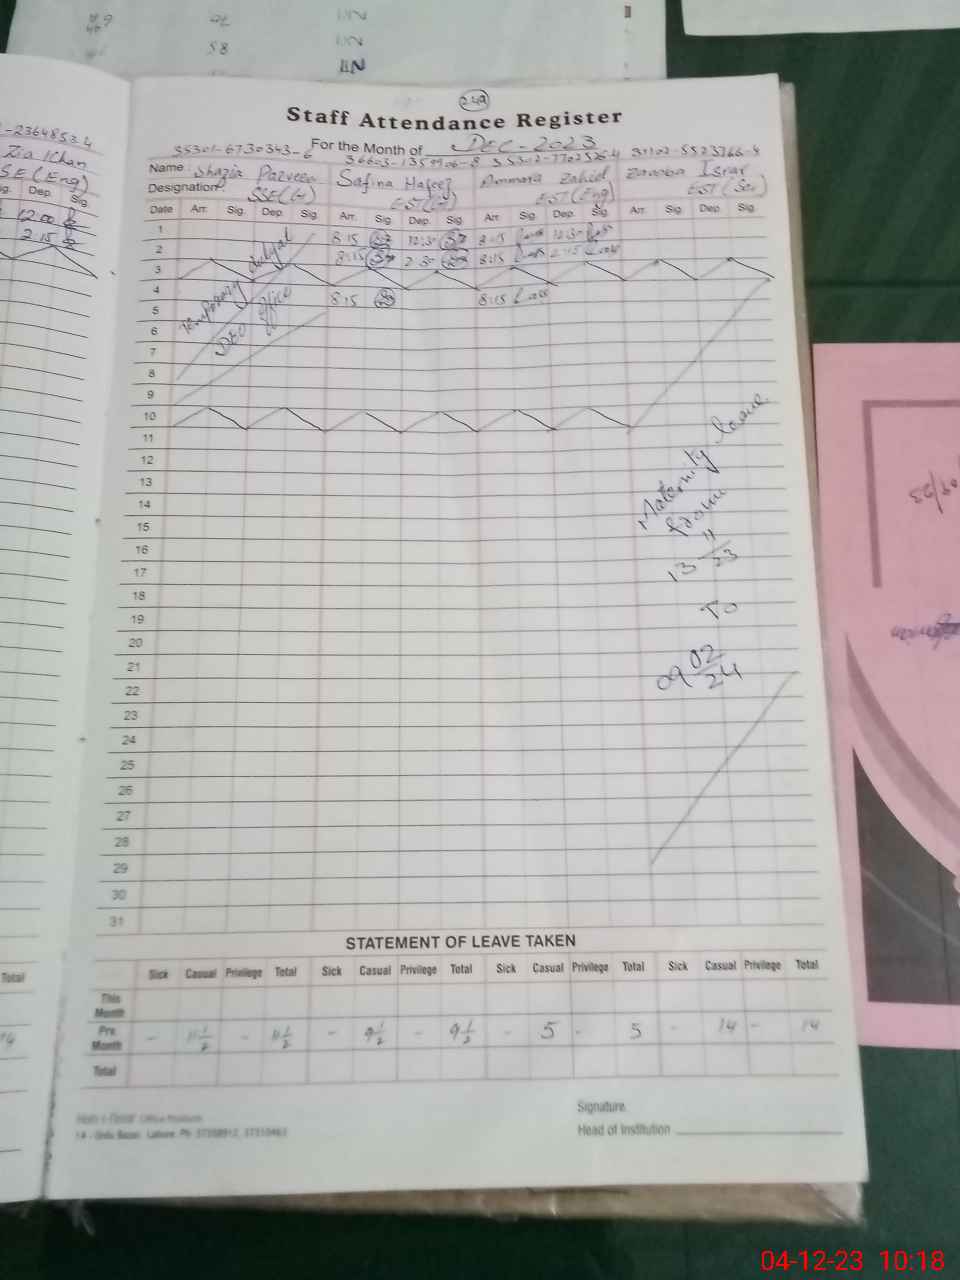 249
Staff Attendance Register
For the Month of DEC-2023
35301-6730343-6 36603-1359906-8 35302-7702525-4 31102-5523766-4
Name: Shazia Parveen Safina Hafeez Ammara Zahid Israr
Designation SSE(G) EST(G) EST(Eng) EST(Sci)
Date Arr. Sig. Dep. Sig. Arr. Sig. Dep. Sig. Arr. Sig. Dep. Sig. Arr. Sig. Dep. Sig.
1 8:15 12:30 8:15 12:30
2 8:15 2:30 8:15 2:15
3
4 8:15 8:15
5
6
7
8
9
10
11
12
13
14
15
16
17
18
19
20
21
22
23
24
25
26
27
28
29
30
31
Temporary
DEO office
Maternity leave
from
13 11/23
To
09 02/24
STATEMENT OF LEAVE TAKEN
Sick Casual Privilege Total Sick Casual Privilege Total Sick Casual Privilege Total Sick Casual Privilege Total
This Month
Pre. Month - 11 1/2 - 11 1/2 - 9 1/2 - 9 1/2 - 5 - 5 - 14 - 14
Total
Signature.
Head of Institution
-2364853-4
Zia Khan
SE(Eng)
Dep. Sig.
12:00
2:15
Total
04-12-23 10:18